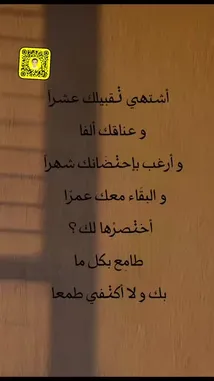 أشتهي تْقبيلك عشراً
و عناقك ألفا
و أرغب بإحتْضانك شهراً
و البقَاء معك عمرًا
أختْصرْها لك ؟
طامع بكل ما
بك و لا أكتْفي طمعا